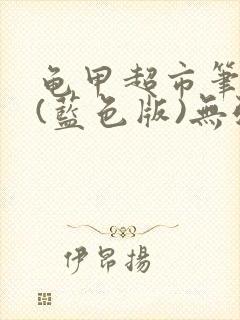 龟甲超市筆
(藍色版)無
伊昂揚